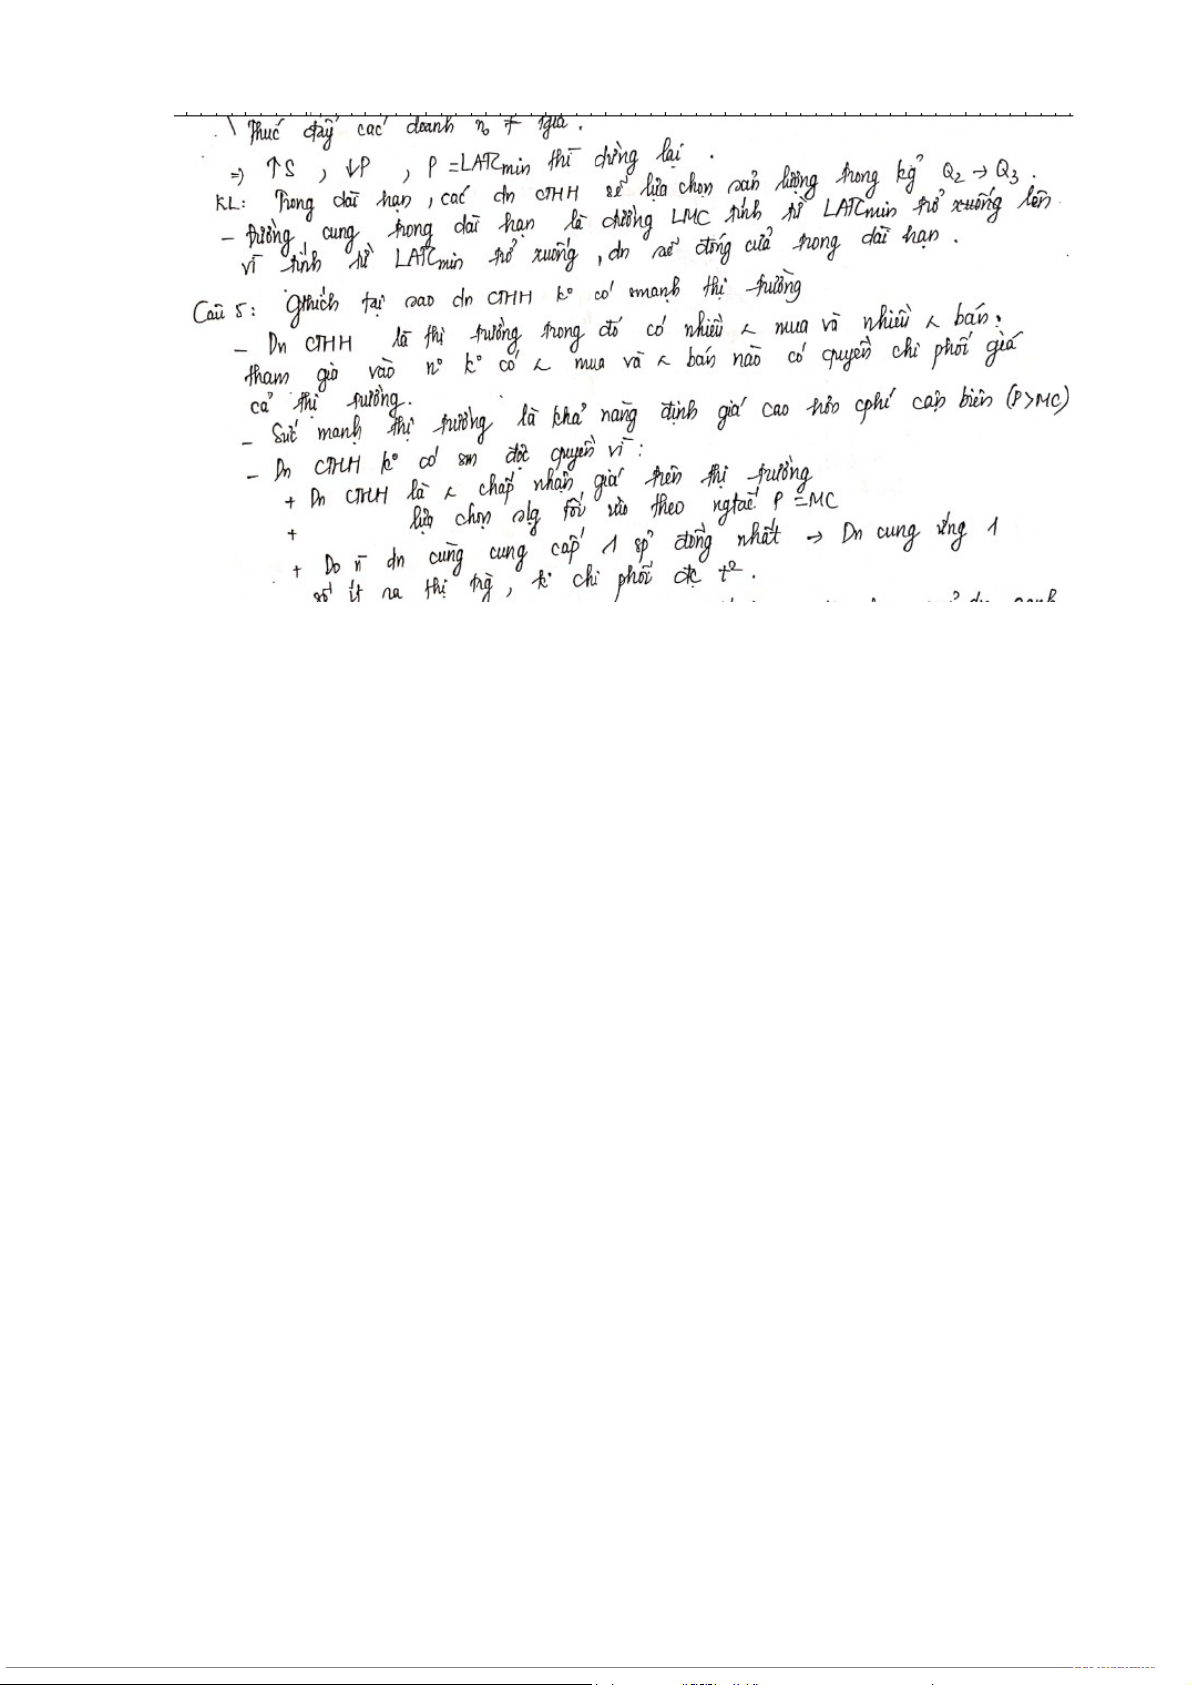 Thúc đẩy các doanh n° ≠ tgia.
=) ↑S , ↓P , P = LATCmin thì dừng lại .
KL: Trong dài hạn, các dn CTHH sẽ lựa chọn sản lượng trong kg° Q2 → Q3 .
- Đường cung trong dài hạn là đường LMC tính từ LATCmin trở xuống lên
vì tính từ LATCmin trở xuống, dn sẽ đóng cửa trong dài hạn .
Câu 5: Gthích tại sao dn CTHH k° có smạnh thị trường
- Dn CTHH là thị trường trong đó có nhiều < mua và nhiều < bán;
tham gia vào n° k° có < mua và < bán nào có quyền chi phối giá
cả thị trường.
- Sức mạnh thị trường là khả năng định giá cao hơn cphí cận biên (P>MC)
- Dn CTHH k° có sm độc quyền vì :
+ Dn CTHH là < chấp nhận giá trên thị trường
+ lựa chọn slg tối ưu theo ngtắc P = MC
+ Do n dn cùng cung cấp 1 sp° đồng nhất → Dn cung ứng 1
số ít ra thị trg, k° chi phối đc t² .